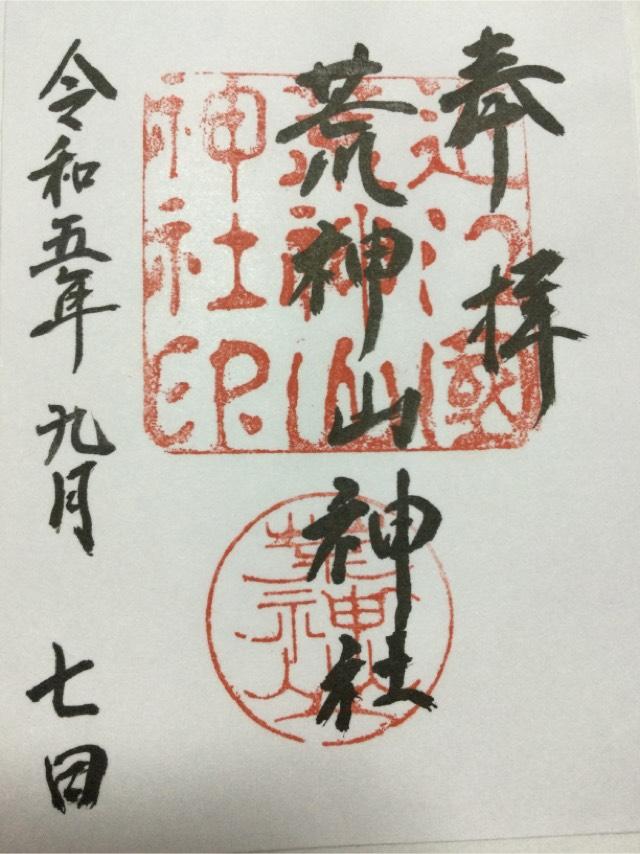 奉拝
荒神山神社
令和五年 九月 七日
近江國
荒神山
神社印